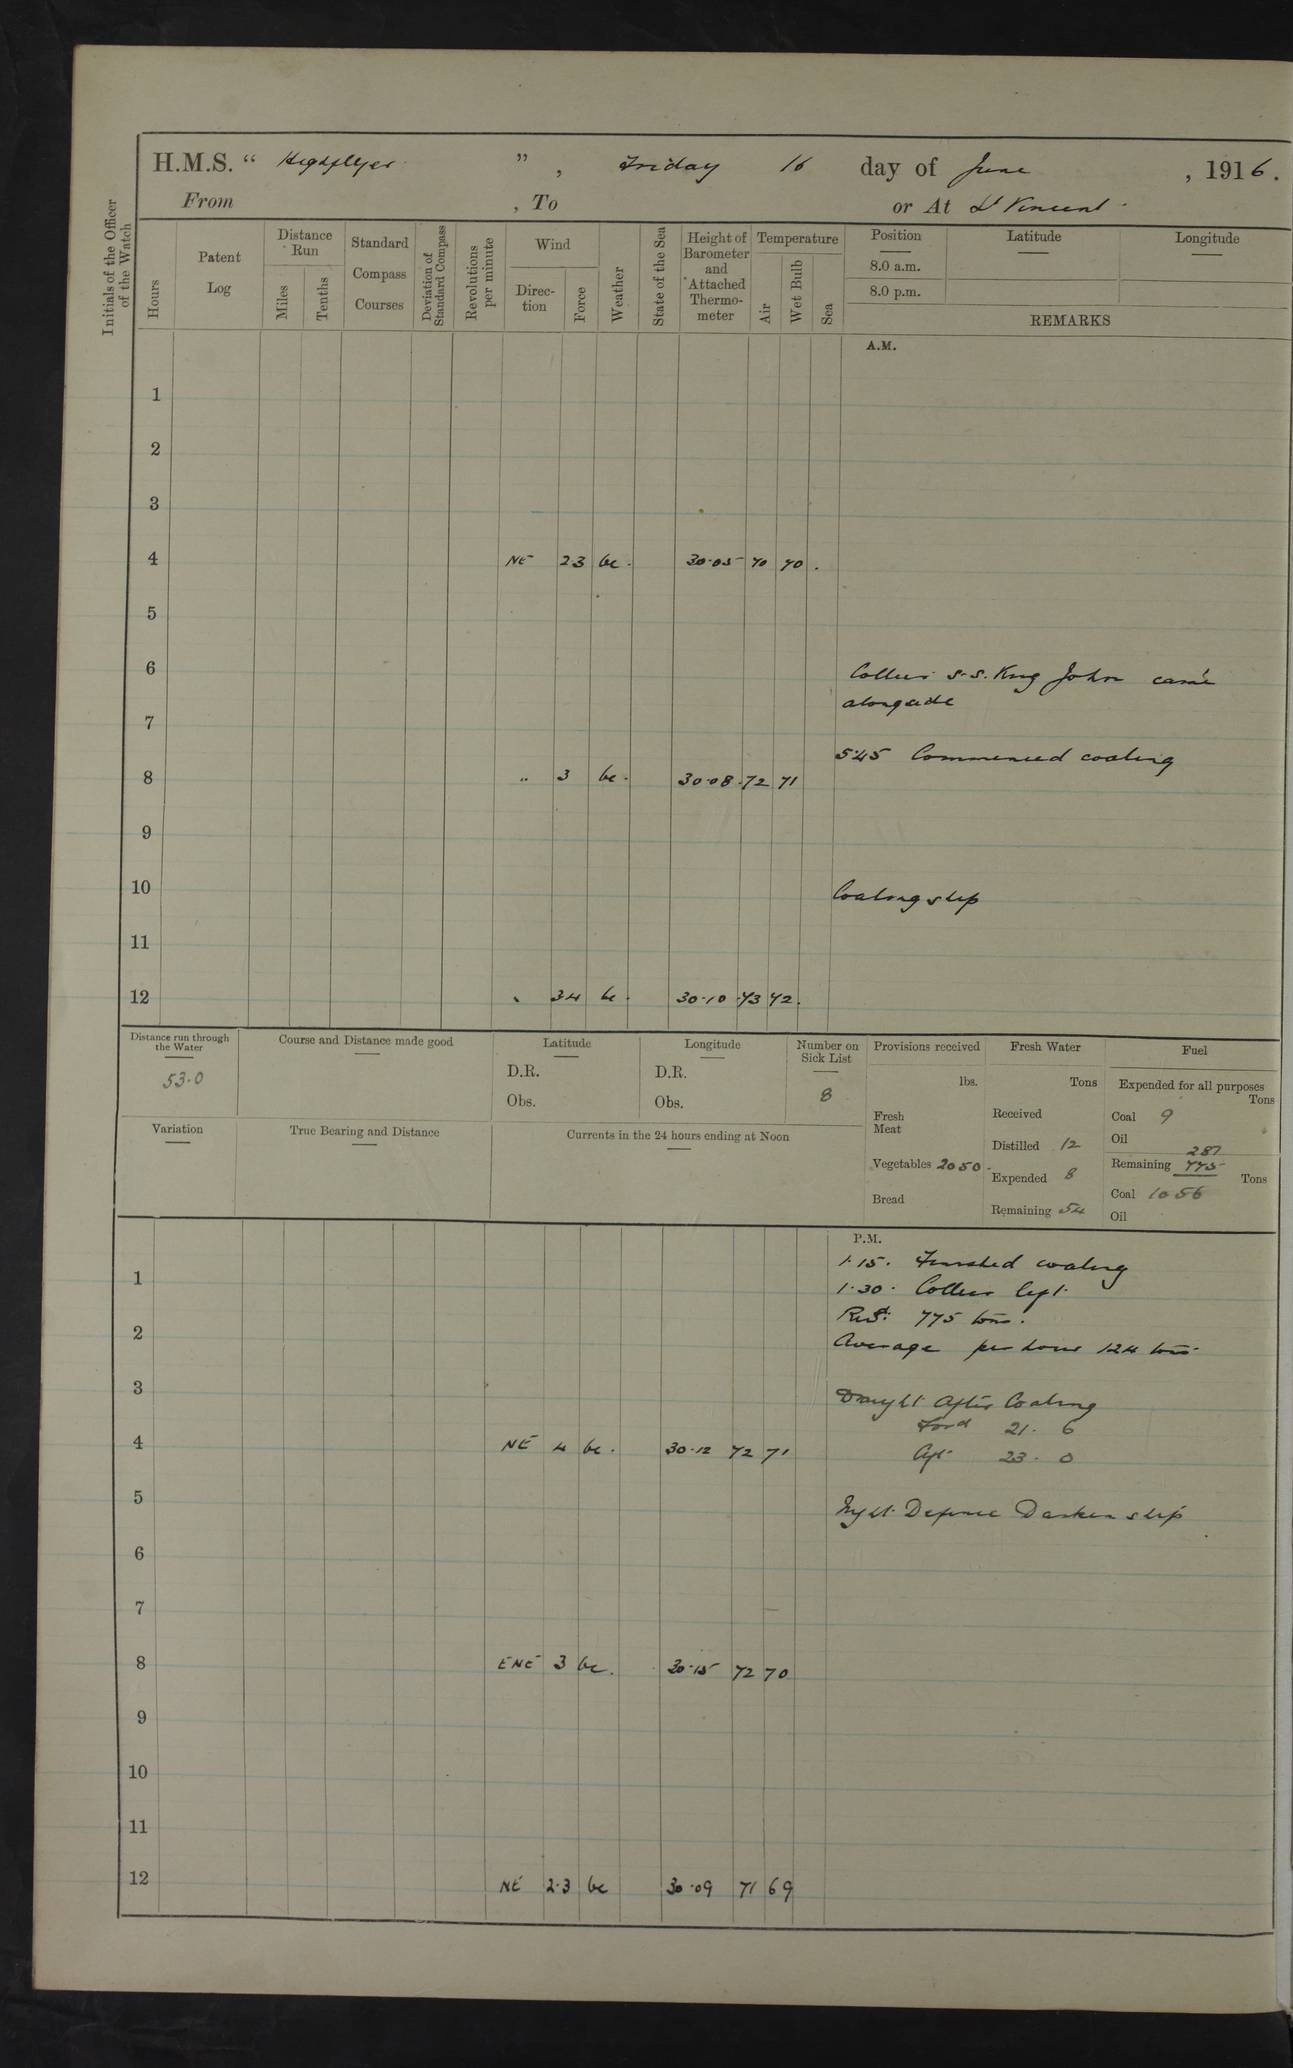 H.M.S. “ Highflyer ” , Friday 16 day of June , 1916.
From , To or At St Vincent.
Initials of the Officer of the Watch
Hours
Patent Log
Distance Run
Miles
Tenths
Standard Compass Courses
Deviation of Standard Compass
Revolutions per minute
Wind
Direction
Force
Weather
State of the Sea
Height of Barometer and Attached Thermometer
Temperature
Air
Wet Bulb
Sea
Position
8.0 a.m.
8.0 p.m.
Latitude
Longitude
REMARKS
A.M.
1
2
3
4 NE 23 bc. 30.05 70 70.
5
6 Collier S.S. King John came
alongside
7
5.45 Commenced coaling
8 " 3 bc. 30.08 72 71
9
10 Coaling ship
11
12 " 34 bc. 30.10 73 72.
Distance run through the Water
53.0
Course and Distance made good
Latitude
D.R.
Obs.
Longitude
D.R.
Obs.
Number on Sick List
8
Variation
True Bearing and Distance
Currents in the 24 hours ending at Noon
Provisions received
lbs.
Fresh Meat
Vegetables 2050.
Bread
Fresh Water
Tons
Received
Distilled 12
Expended 8
Remaining 54
Fuel
Expended for all purposes
Tons
Coal 9
Oil
287
Remaining 775
Tons
Coal 1056
Oil
P.M.
1.15. Finished coaling
1
1.30. Collier left.
Recd: 775 tons.
2
Average per hour 124 tons
3
Draught after Coaling
Ford 21. 6
4 NE 4 bc. 30.12 72 71
Aft 23. 0
5
Night Defence Darken ship
6
7
8 ENE 3 bc. 30.15 72 70
9
10
11
12 NE 2.3 bc 30.09 71 69